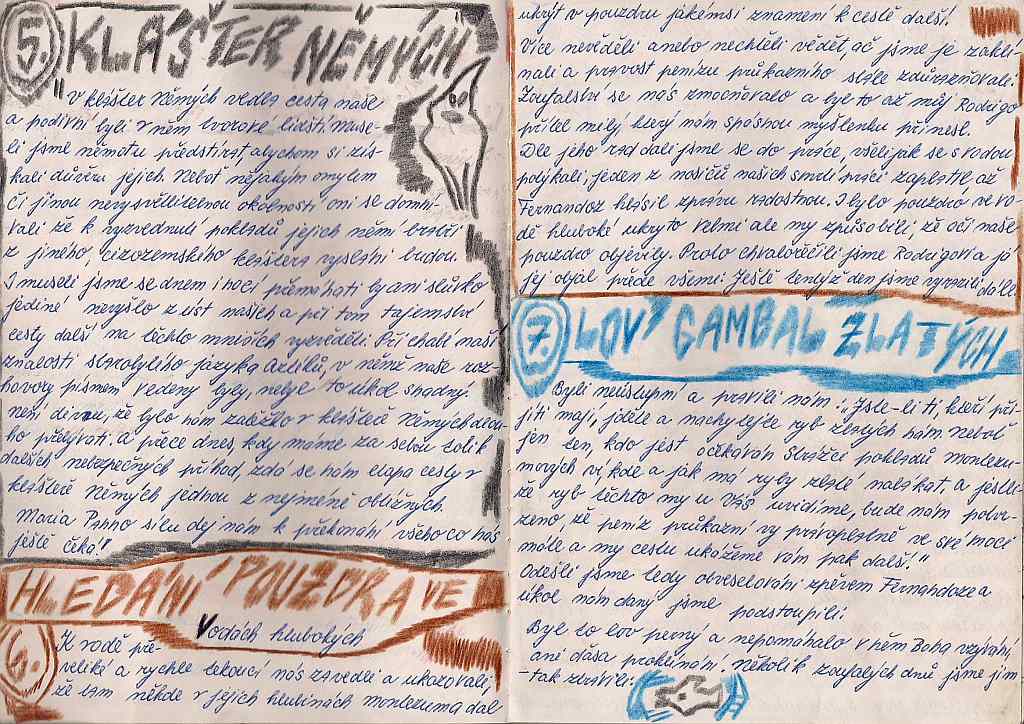 5. KLÁŠTER NĚMÝCH
"V klášter Němých vedla cesta naše
a podivní byli v něm tvorové lidští. Muse-
li jsme němotu předstírat, abychom si zís-
kali důvěru jejich. Neboť nějakým omylem
či jinou nevysvětlitelnou okolností oni se domní-
vali že k vyzvednutí pokladů jejich němí bratři
z jiného, cizozemského kláštera vysláni budou.
I museli jsme se dnem i nocí přemáhati by ani slůvko
jediné nevyšlo z úst našich a při tom tajemství
cesty další na těchto mniších vyzvěděli. Při chabé naší
znalosti starobylého jazyka Aztéků, v němž naše roz-
hovory písmem vedeny byly, nebyl to úkol snadný.
Není divu, že bylo nám zatěžko v klášteře Němých dlou-
ho přebývati, a přece dnes, kdy máme za sebou tolik
dalších nebezpečných příhod, zdá se nám etapa cesty v
klášteře Němých jednou z nejméně obtížných.
Maria Panno sílu dej nám k překonání všeho co nás
ještě čeká!"
HLEDÁNÍ POUZDRA VE
Vodách hlubokých
6.
K vodě pře-
veliké a rychle tekoucí nás zavedli a ukazovali,
že tam někde v jejich hlubinách Montezuma dal
ukrýt v pouzdru jakémsi znamení k cestě další.
Více nevěděli anebo nechtěli vědět, ač jsme je zaklí-
nali a pravost penízu průkazního stále zdůrazňovali.
Zoufalství se nás zmocňovalo a byl to až můj Rodrigo
přítel milý, který nám spásnou myšlenku přinesl.
Dle jeho rad dali jsme se do práce, všelijak se s vodou
potýkali, jeden z nosičů našich smrtí práci zaplatil, až
Fernandoz hlásil zprávu radostnou. I bylo pouzdro ve vo-
dě hluboké ukryto velmi ale my způsobili, že oči naše
pouzdro objevily. Proto chvalořečili jsme Rodrigovi a já
jej objal přede všemi. Ještě tentýž den jsme vyrazili dále
7. LOV GAMBAL ZLATÝCH
Byli neústupní a pravili nám: "Jste-li ti, kteří při-
jíti mají, jděte a nachytejte ryb zlatých nám. Neboť
jen ten, kdo jest očekáván strážci pokladů Montezu-
mových ví, kde a jak má ryby zlaté nalákat, a jestli-
že ryb těchto my u Vás uvidíme, bude nám potvr-
zeno, že peníz průkazní vy právoplatně ve své moci
máte a my cestu ukážeme vám pak další."
Odešli jsme tedy obveselováni zpěvem Fernandoze a
úkol nám daný jsme podstoupili.
Byl to lov perný a nepomáhalo v něm Boha vzývání,
ani ďasa proklínání. Několik zoufalých dnů jsme jím
-tak ztrávili.